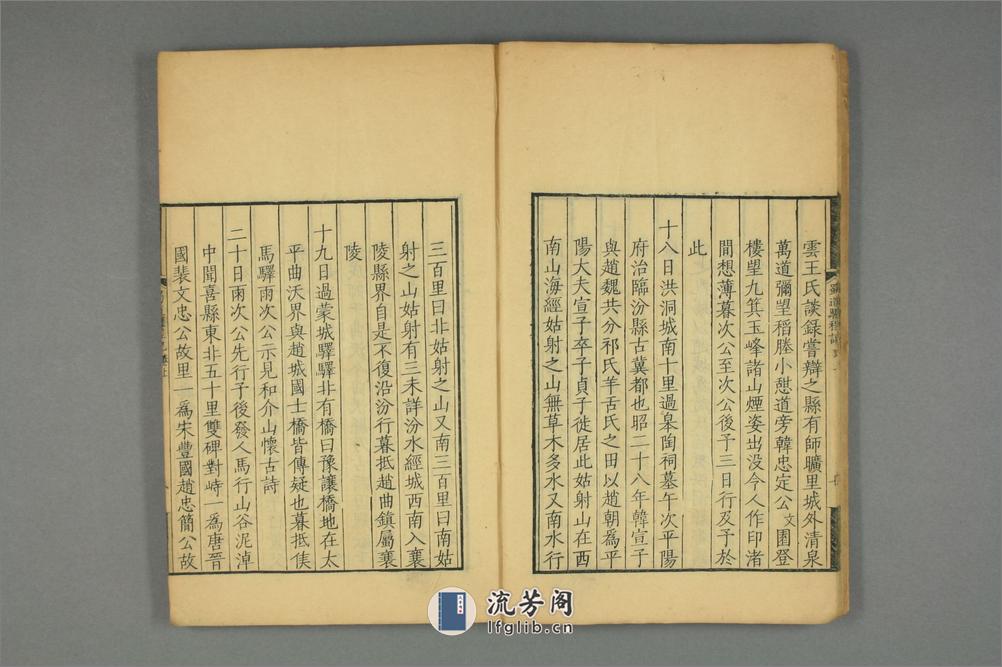 雲王氏談録嘗辯之縣有師曠里城外清泉
萬道彌望稻塍小憇道旁韓忠定公文園登
樓望九箕玉峰諸山煙姿出没令人作印渚
間想薄暮次公至次公後予三日行及予於
此
十八日洪洞城南十里過皋陶祠墓午次平陽
府治臨汾縣古冀都也昭二十八年韓宣子
與趙魏共分祁氏羊舌氏之田以趙朝爲平
陽大夫宣子卒子貞子徙居此姑射山在西
南山海經姑射之山無草木多水又南水行
三百里曰北姑射之山又南三百里曰南姑
射之山姑射有三未詳汾水經城西南入襄
陵縣界自是不復沿汾行暮抵趙曲鎮屬襄
陵
十九日過蒙城驛驛北有橋曰豫讓橋地在太
平曲沃界與趙城國士橋皆傳疑也暮抵侯
馬驛雨次公示見和介山懷古詩
二十日雨次公先行予後發人馬行山谷泥淖
中聞喜縣東北五十里雙碑對峙一爲唐晉
國裴文忠公故里一爲宋豐國趙忠簡公故
流芳阁
lfglib.cn